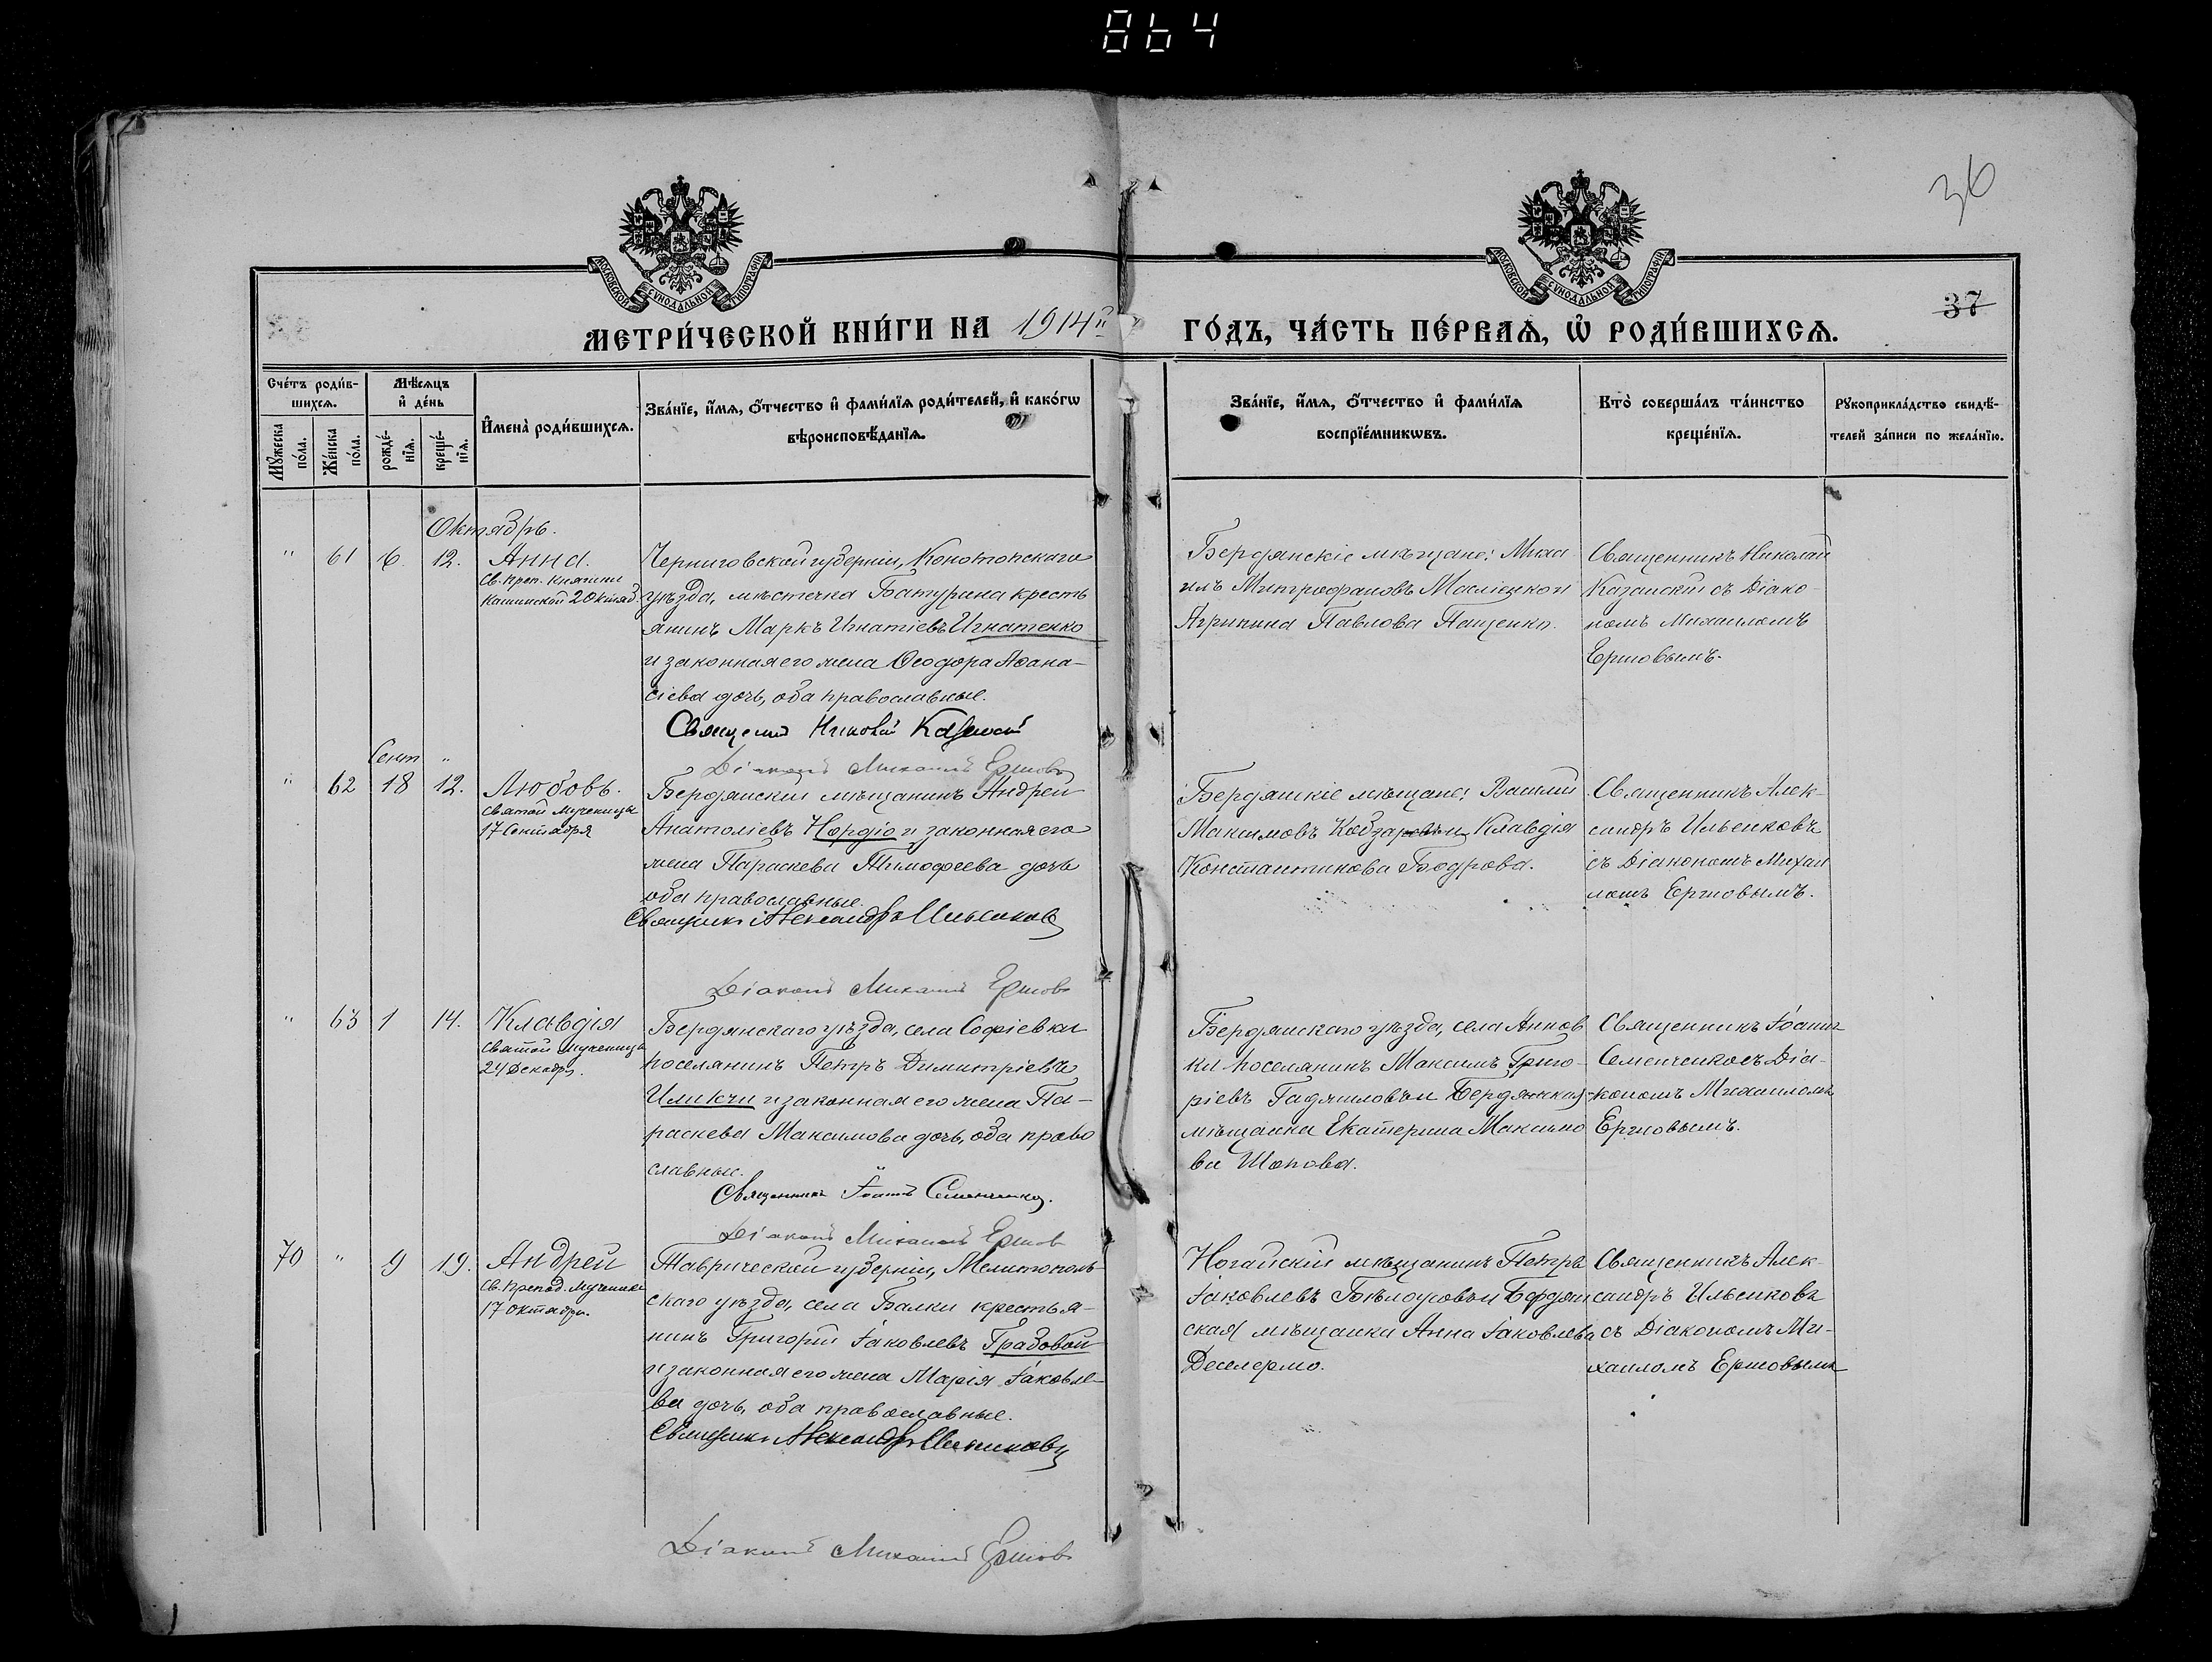 864
36
37
МОСКОВСКОЙ СѴНОДАЛЬНОЙ ТИПОГРАФІИ
МОСКОВСКОЙ СѴНОДАЛЬНОЙ ТИПОГРАФІИ
МЕТРИ́ЧЕСКОЙ КНИ́ГИ НА 1914й ГО́ДЪ, ЧА́СТЬ ПЕ́РВАѦ, Ѿ РОДИ́ВШИХСѦ.
Сче́тъ роди́в-
шихсѧ.
Мꙋ́жеска по́ла.
Же́нска по́ла.
Мѣ́сѧцъ
и҆ де́нь
рожде́-
нїѧ.
креще́-
нїѧ.
И҆мена̀ роди́вшихсѧ.
Зва́нїе, и҆́мѧ, ѻ҆́тчество и҆ фами́лїѧ роди́телей, и҆ како́гѡ
вѣроисповѣ́данїѧ.
Зва́нїе, и҆́мѧ, ѻ҆́тчество и҆ фами́лїѧ
воспрїе́мникѡвъ.
Кто̀ соверша́лъ та́инство
креще́нїѧ.
Рꙋкоприкла́дство свидѣ́-
телей за́писи по жела́нїю.
Октябрь.
" 61 6. 12. Анна.
Св. Преп. Княгини
Кашинской 2 Октяб.
Черниговской губерніи, Конотопскаго
уѣзда, мѣстечка Батурина кресть
янинъ Маркъ Игнатіевъ Игнатенко
и законная его жена Ѳеодора Аѳана-
сіева дочь, оба православные.
Священникъ Николай Казанскій
Діаконъ Михаилъ Ершовъ
Бердянскіе мѣщане: Миха
илъ Митрофановъ и
Агрипина Павлова Пащенко.
Священникъ Николай
Казанскій съ Діако-
номъ Михаиломъ
Ершовымъ.
Сент "
" 62 18 12. Любовь.
Святой Мученицы
17 Сентября
Бердянскій мѣщанинъ Андрей
Анатоліевъ Нордіо и законная его
жена Параскева Тимофеева дочь
оба православные.
Священникъ Александръ Ильенковъ
Діаконъ Михаилъ Ершовъ
Бердянскіе мѣщане: Василій
Максимовъ и Клавдія
Константинова Бодрова.
Священникъ Алек-
сандръ Ильенковъ
съ Діакономъ Михаи
ломъ Ершовымъ.
" 63 1 14. Клавдія
Святой Мученицы
24 Декабря.
Бердянскаго уѣзда, села Софіевки
поселянинъ Петръ Димитріевъ
Иликчи и законная его жена Па-
раскева Максимова дочь, оба право
славные.
Священникъ Іоаннъ Семенченко.
Діаконъ Михаилъ Ершов
Бердянскаго уѣзда, села Аннов
ки поселянинъ Максимъ Григо-
ріевъ и Бердянская
мѣщанка Екатерина Максимо
ва Шопова.
Священникъ Іоаннъ
Семенченко съ Діа-
кономъ Михаиломъ
Ершовымъ.
70 " 9 19. Андрей
Св. Препод. Мученика
17 Октября.
Таврической губерніи, Мелитополь-
скаго уѣзда, села Балки крестья-
нинъ Григорій Іаковлевъ Градовой
и законная его жена Марія Іаковле-
ва дочь, оба православные.
Священникъ Александръ Ильенковъ
Діаконъ Михаилъ Ершовъ
Ногайскій мѣщанинъ Петръ
Іаковлевъ Бѣлоусовъ и Бердян
ская мѣщанка Анна Іаковлева
Деселермо.
Священникъ Алек-
сандръ Ильенковъ
съ Діакономъ Ми-
хаиломъ Ершовымъ